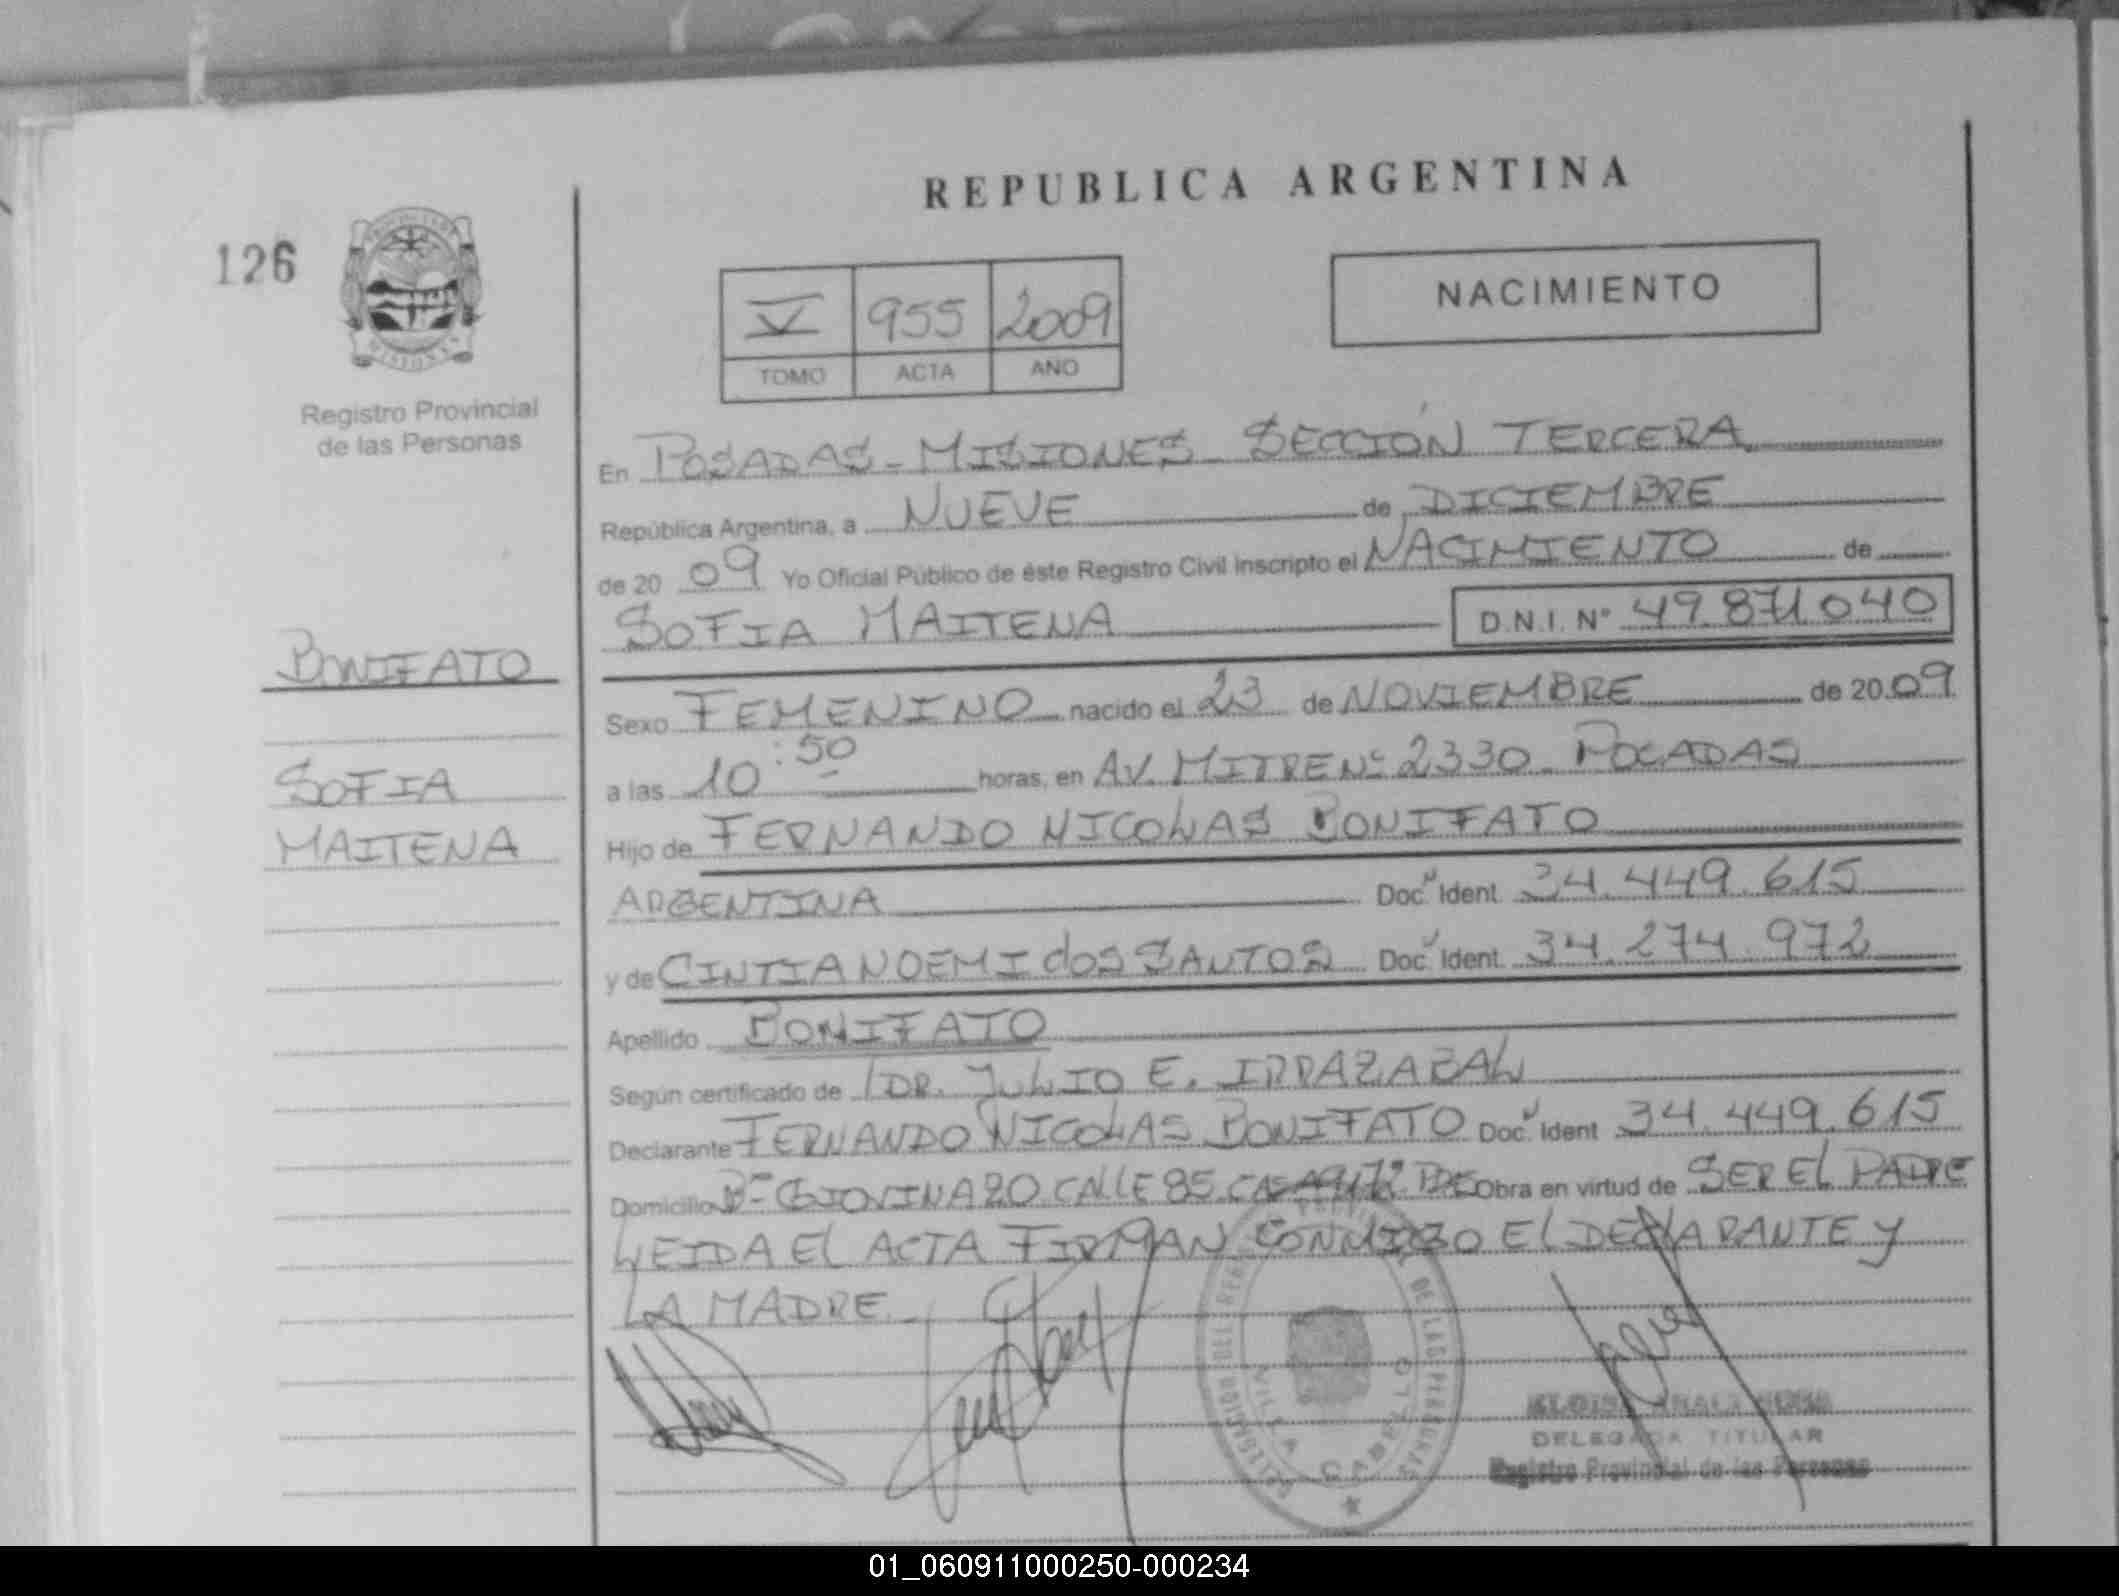 REPUBLICA ARGENTINA
126
NACIMIENTO
V 955 2009
TOMO ACTA AÑO
Registro Provincial
de las Personas
En POSADAS - MISIONES - SECCIÓN TERCERA
República Argentina, a NUEVE de DICIEMBRE
de 20 09 Yo Oficial Público de éste Registro Civil inscripto el NACIMIENTO de
SOFIA MAITENA D.N.I. Nº 49.871.040
BONIFATO
Sexo FEMENINO nacido el 23 de NOVIEMBRE de 20 09
a las 10:50 horas, en AV. MITRE Nº 2330 - POSADAS
SOFIA
MAITENA
Hijo de FERNANDO NICOLAS BONIFATO
ARGENTINA Doc. Ident. 34.449.615
y de CINTIA NOEMI dos SANTOS Doc. Ident. 34.274.972
Apellido BONIFATO
Según certificado de DR. JULIO E. IRRAZABAL
Declarante FERNANDO NICOLAS BONIFATO Doc. Ident 34.449.615
Domicilio CALLE 85 Obra en virtud de SER EL PADRE
LEIDA El ACTA FIRMAN CONMIGO El DECLARANTE Y
LA MADRE.
VILLA CABELLO
DELEGADA TITULAR
Registro Provincial de las Personas
01_060911000250-000234